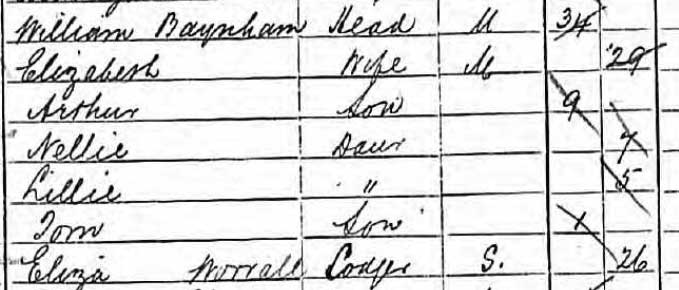 William Baynham Head M 34
Elizabeth Wife M 29
Arthur Son 9
Nellie Daur 7
Lillie " 5
Tom Son 1
Eliza Worrall Lodger S. 26